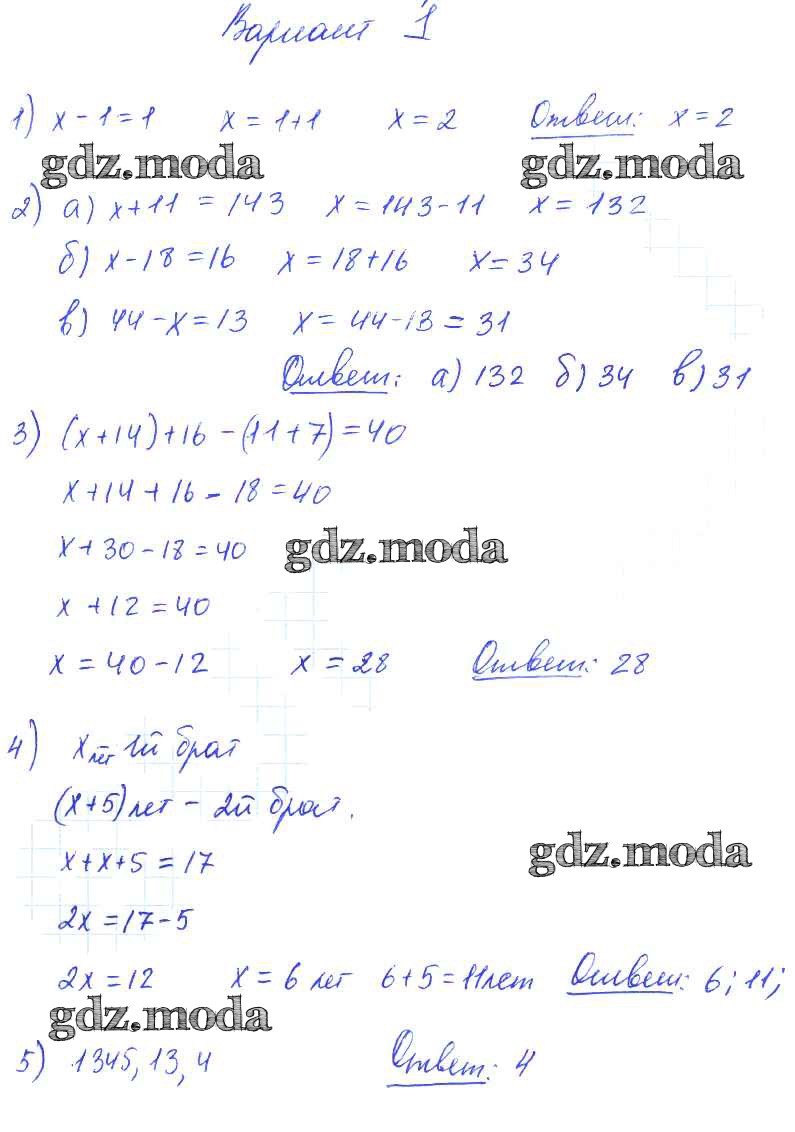 Вариант 1
1) x - 1 = 1 x = 1+1 x = 2 Ответ: x = 2
gdz.moda gdz.moda
2) а) x+11 = 143 x = 143-11 x = 132
б) x-18 = 16 x = 18+16 x = 34
в) 44-x = 13 x = 44-13 = 31
Ответ: а) 132 б) 34 в) 31
3) (x+14)+16-(11+7) = 40
x+14+16-18 = 40
x+30-18 = 40
gdz.moda
x+12 = 40
x = 40-12 x = 28 Ответ: 28
4) x лет 1й брат
(x+5) лет - 2й брат.
x+x+5 = 17
gdz.moda
2x = 17-5
2x = 12 x = 6 лет 6+5 = 11лет Ответ: 6; 11;
gdz.moda
5) 1345, 13, 4 Ответ: 4